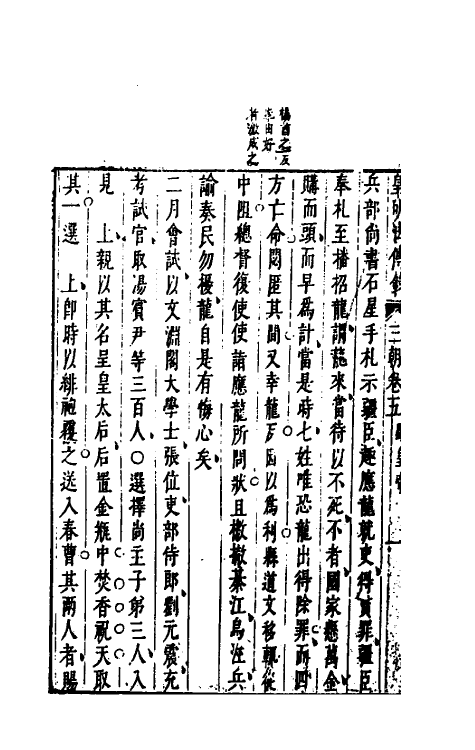 楊酋之反
率由奸
者激成之
皇明世傳錄 三朝卷五
兵部尚書石星手札示疆臣趣應龍就吏得貰罪疆臣
奉札至播招龍謂龍來當待以不死不者國家懸萬金
購而頭而早為計當是時七姓唯恐龍出得除罪而四
方亡命閱匿其間又幸龍反因以為利縣道文移輒從
中阻總督復使使詣應龍所問狀且檄撤綦江烏江兵
諭秦民勿擾龍自是有悔心矣
二月會試以文淵閣大學士張位吏部侍郎劉元震充
考試官取湯賓尹等三百人○選擇尚主子弟三人入
見 上親以其名呈皇太后后置金甁中焚香祝天取
其一選 上卽時以緋袍覆之送入春曹其兩人者賜